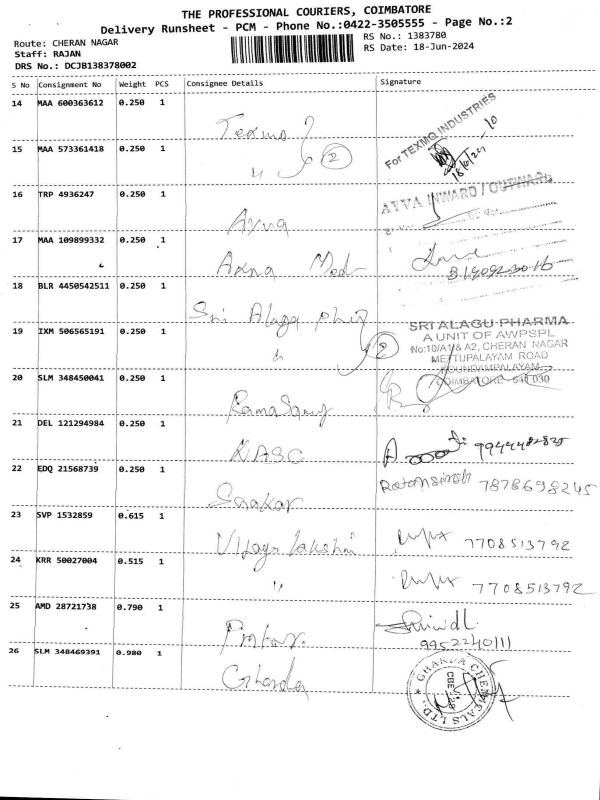 THE PROFESSIONAL COURIERS, COIMBATORE
Delivery Runsheet - PCM - Phone No.:0422-3505555 - Page No.:2
Route: CHERAN NAGAR
Staff: RAJAN
DRS No.: DCJB138378002
RS No.: 1383780
RS Date: 18-Jun-2024
S No Consignment No Weight PCS Consignee Details Signature
14 MAA 600363612 0.250 1 Texmo
For TEXMO INDUSTRIES
18/6/24
15 MAA 573361418 0.250 1 " 2
16 TRP 4936247 0.250 1 Ayva
AYVA INWARD / OUTWARD
17 MAA 109899332 0.250 1
18 BLR 4450542511 0.250 1 Sri Alaga
19 IXM 506565191 0.250 1 " 2
SRI ALAGU PHARMA
A UNIT OF AWPSPL
No:10/A1 & A2, CHERAN NAGAR
METTUPALAYAM ROAD
KOUNDAMPALAYAM
COIMBATORE - 641 030
20 SLM 348450041 0.250 1 Ramasamy
21 DEL 121294984 0.250 1 KASC
22 EDQ 21568739 0.250 1 7878698245
23 SVP 1532859 0.615 1 Vijaya Lakshmi 7708513792
24 KRR 50027004 0.515 1 " 7708513792
25 AMD 28721738 0.790 1
9952240111
26 SLM 348469391 0.980 1 Gharda
GHARDA CHEMICALS LTD.,
CBE